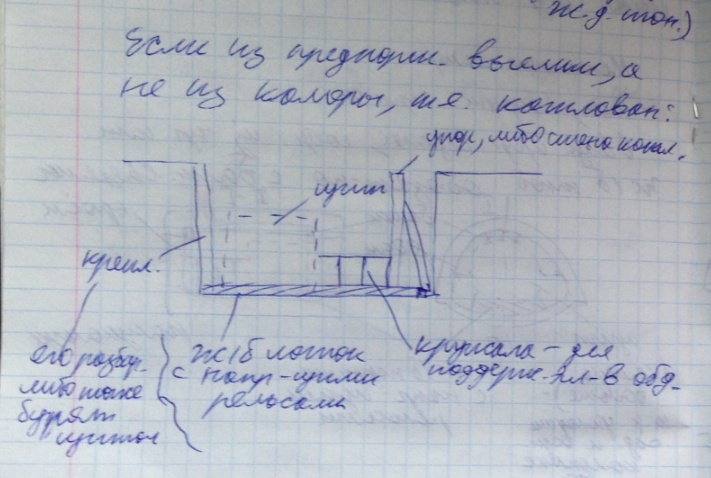 ж.д. тон.)
Если из предпорт. выемки, а
не из камеры, то котлован:
упор, либо стена котл.
щит
крепл.
его разбир.
либо тоже
бурят
щитом
Ж/б лоток
с напр-щими
рельсами
кружала – для
поддерж. эл-в обд.